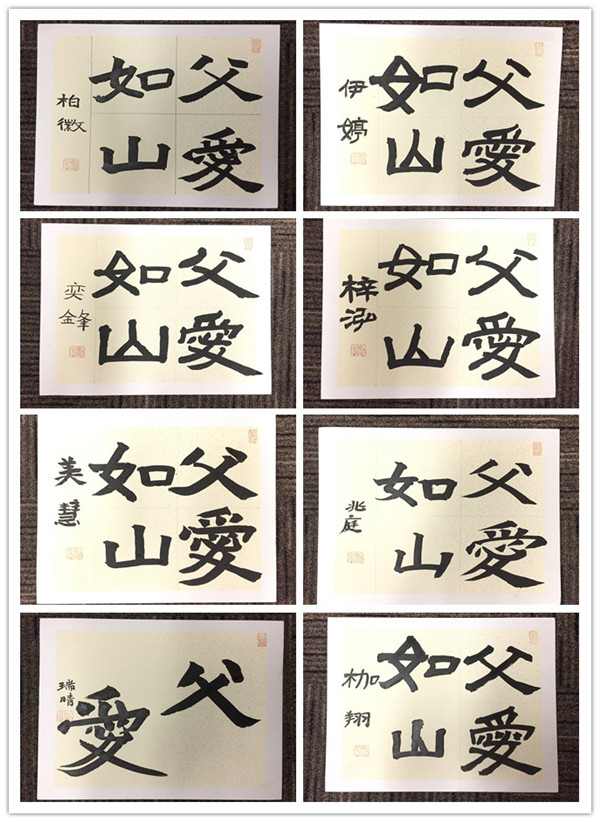 父愛
如山
柏徽
父愛
如山
伊婷
父愛
如山
奕鋒
父愛
如山
梓泓
父愛
如山
美慧
父愛
如山
兆庭
父
愛
瑞晴
父愛
如山
枷翔